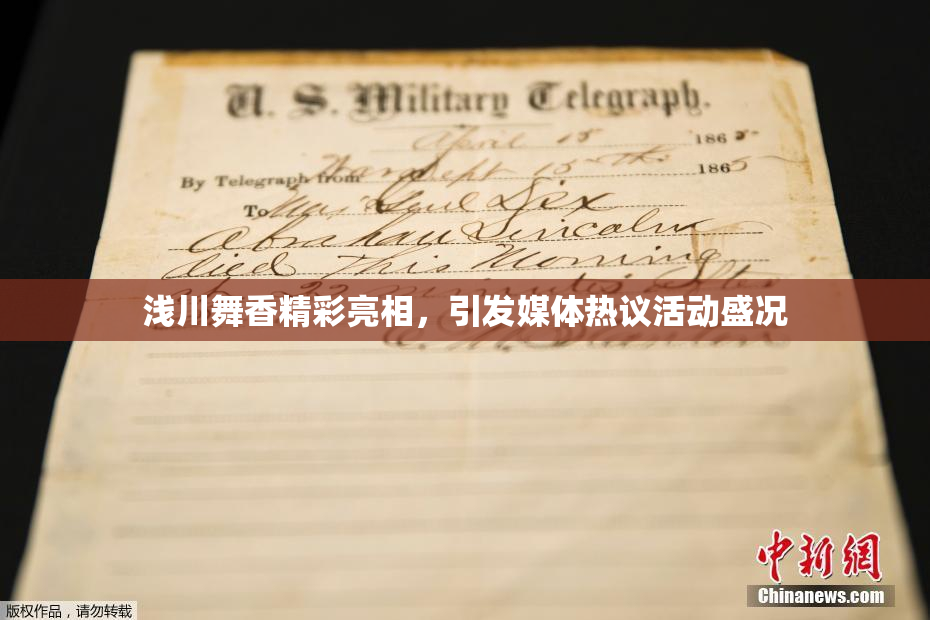 U. S. Military Telegraph.
April 15 1865
By Telegraph from War Dept 15th 1865
To Maj Genl Dix
Abraham Lincoln
died This Morning
at 22 minutes after
浅川舞香精彩亮相，引发媒体热议活动盛况
E. M. Stanton
中新网
Chinanews.com
版权作品，请勿转载